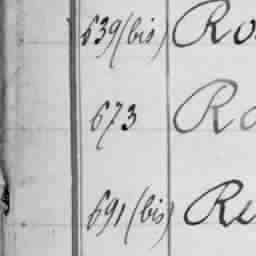 639 (bis) Ro
673 Ro
691 (bis) Re